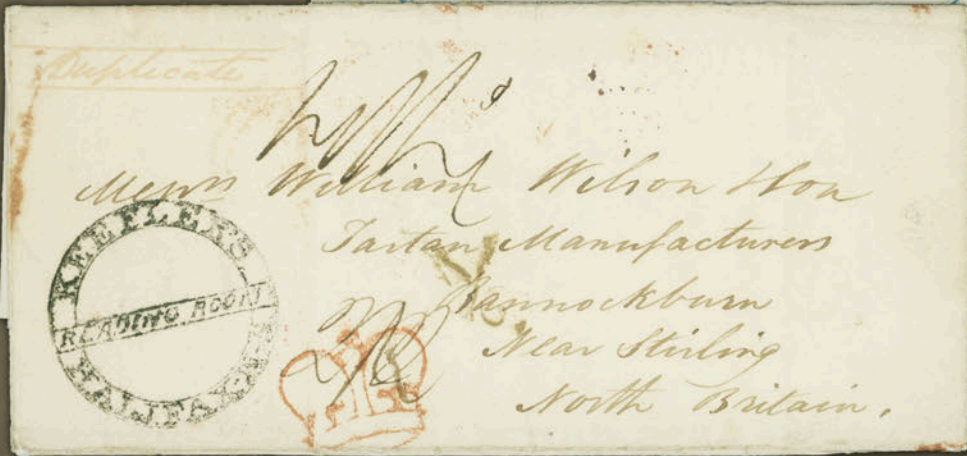 Duplicate
Messrs William Wilson & Son
Tartan Manufacturers
Bannockburn
Near Stirling
North Britain.
KEEFLER'S
READING ROOM
HALIFAX N.S.